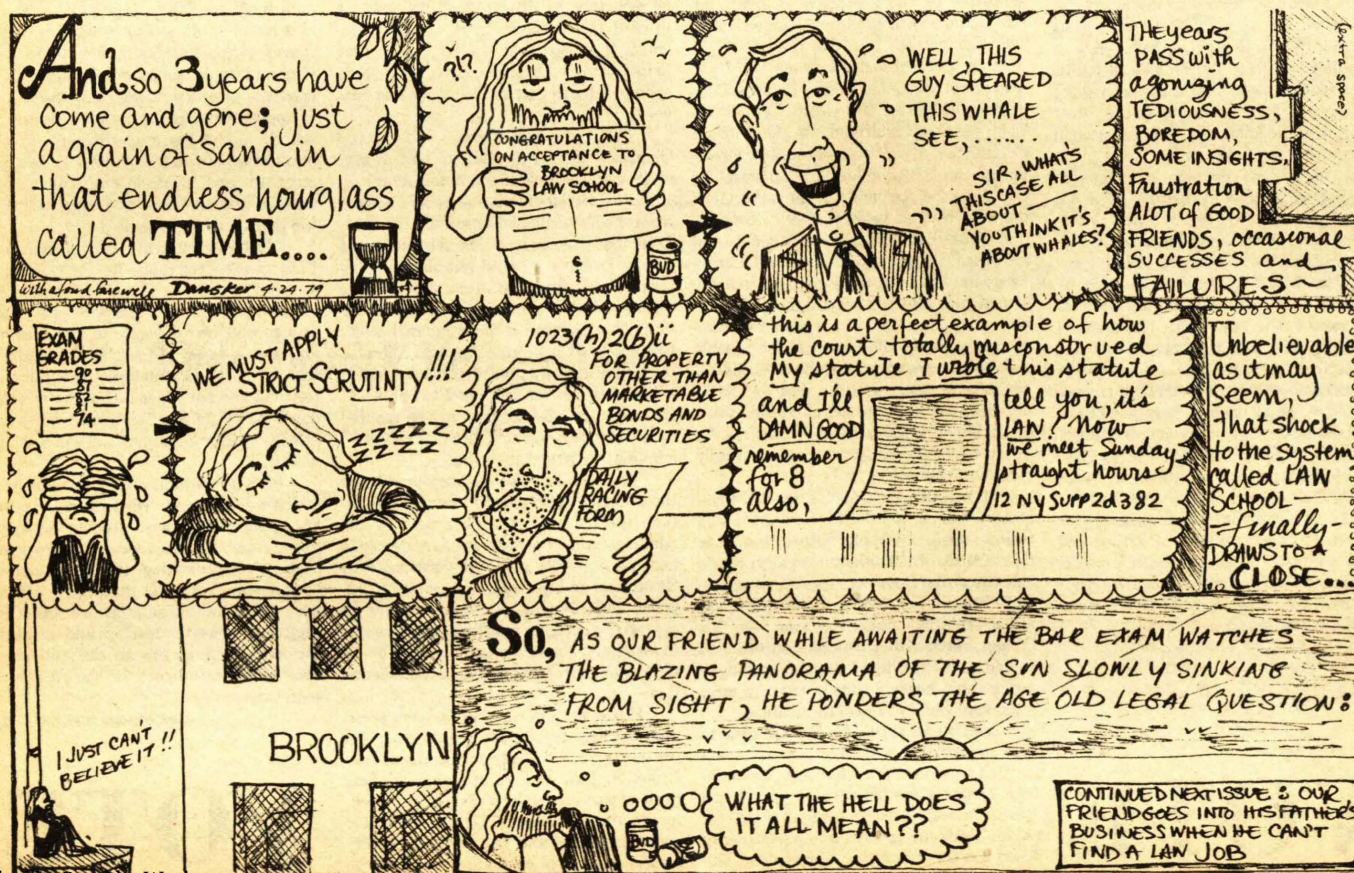 And so 3 years have
come and gone; just
a grain of sand in
that endless hourglass
called TIME....
with a fond farewell Dansker 4·24·79
?!?
CONGRATULATIONS
ON ACCEPTANCE TO
BROOKLYN
LAW SCHOOL
BUD
WELL, THIS
GUY SPEARED
THIS WHALE
SEE,......
SIR, WHAT'S
THIS CASE ALL
ABOUT
YOU THINK IT'S
ABOUT WHALES?
THE years
PASS with
agonizing
TEDIOUSNESS,
BOREDOM,
SOME INSIGHTS,
Frustration
ALOT of GOOD
FRIENDS, occasional
SUCCESSES and
FAILURES~
(extra space)
EXAM
GRADES
90
87
87
74
WE MUST APPLY
STRICT SCRUTINTY!!!
ZZZZZZ
ZZZZZ
1023(h)2(b)ii
FOR PROPERTY
OTHER THAN
MARKETABLE
BONDS AND
SECURITIES
DAILY
RACING
FORM
this is a perfect example of how
the court totally misconstrued
My statute I wrote this statute
and I'll tell you, it's
DAMN GOOD LAW! Now
remember we meet Sunday
for 8 straight hours
also, 12 Ny Supp 2d 382
Unbelievable
as it may
seem,
that shock
to the system
called LAW
SCHOOL—
finally-
DRAWS TO A
CLOSE...
I JUST CAN'T
BELIEVE IT!!
BROOKLYN
So, AS OUR FRIEND WHILE AWAITING THE BAR EXAM WATCHES
THE BLAZING PANORAMA OF THE SUN SLOWLY SINKING
FROM SIGHT, HE PONDERS THE AGE OLD LEGAL QUESTION:
WHAT THE HELL DOES
IT ALL MEAN??
BUD
CONTINUED NEXT ISSUE: OUR
FRIEND GOES INTO HIS FATHER'S
BUSINESS WHEN HE CAN'T
FIND A LAW JOB